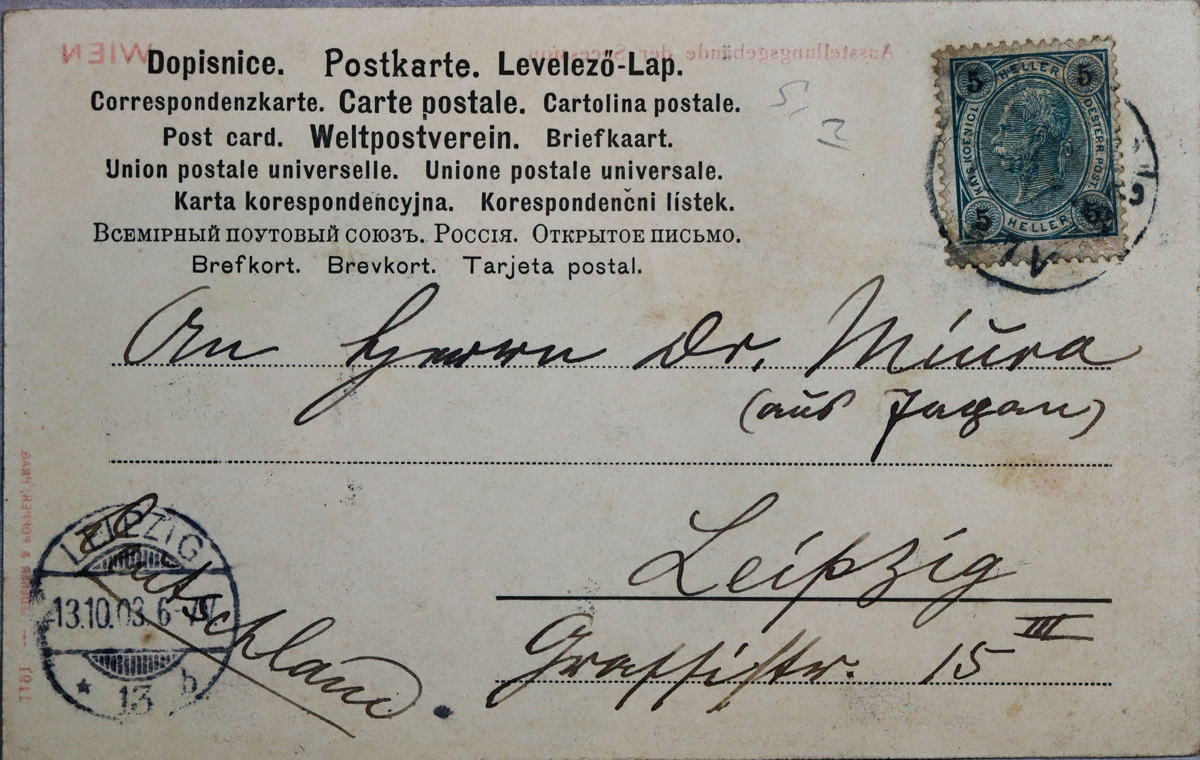 WIEN Ausstellungsgebäude der Secession
Dopisnice. Postkarte. Levelező-Lap.
Correspondenzkarte. Carte postale. Cartolina postale.
Post card. Weltpostverein. Briefkaart.
Union postale universelle. Unione postale universale.
Karta korespondencyjna. Korespondenčni lístek.
Всемірный поутовый союзъ. Россія. Открытое письмо.
Brefkort. Brevkort. Tarjeta postal.
5 HELLER 5
KAIS. KOENIGL. OESTERR. POST.
5 HELLER 5
An Herrn Dr. Miura
(aus Japan)
Leipzig
Grassistr. 15 III
Deutschland.
LEIPZIG
13.10.03. 6-7N
* 13 b
1191